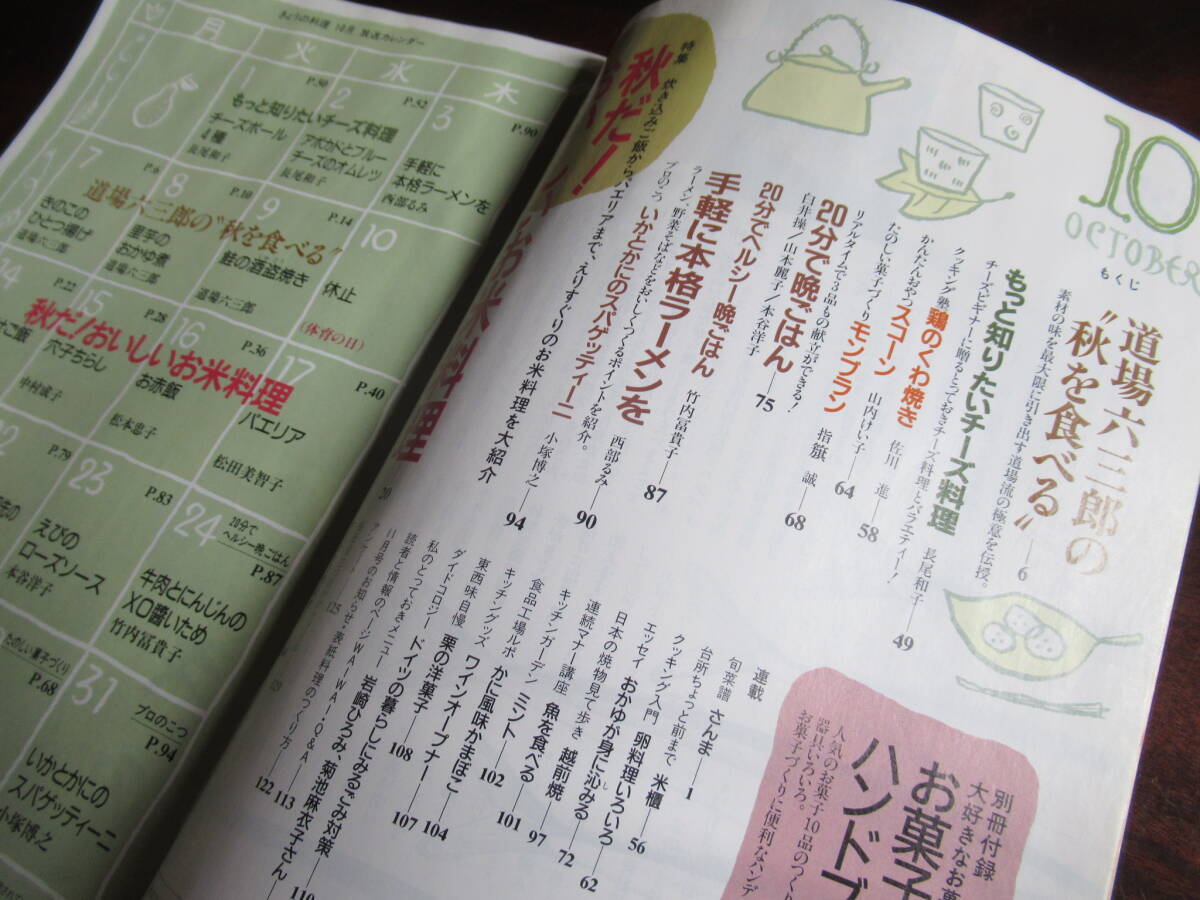 きょうの料理 10月 放送カレンダー
月
火
水
木
1
P.50
もっと知りたいチーズ料理
チーズボール
4種
長尾和子
2
P.52
アボカドとブルー
チーズのオムレツ
長尾和子
3
P.90
手軽に
本格ラーメンを
西部るみ
7
P.6
道場六三郎の“秋を食べる”
きのこの
ひとつ揚げ
道場六三郎
8
P.10
里芋の
おかゆ煮
道場六三郎
9
P.14
鮭の酒盗焼き
道場六三郎
10
休止
(体育の日)
14
P.22
秋だ!おいしいお米料理
15
P.28
穴子ちらし
16
P.36
お赤飯
松本忠子
17
P.40
パエリア
松田美智子
P.79
23
P.83
えびの
ローズソース
本谷洋子
24
20分で
ヘルシー晩ごはん
P.87
牛肉とにんじんの
XO醬いため
竹内冨貴子
たのしい菓子づくり
P.68
31
プロのこつ
P.94
いかとかにの
スパゲッティーニ
小塚博之
10
OCTOBER
もくじ
道場六三郎の
“秋を食べる”
素材の味を最大限に引き出す道場流の極意を伝授。
6
もっと知りたいチーズ料理
チーズビギナーに贈るとっておきチーズ料理とバラエティー!
長尾和子
49
クッキング塾 鶏のくわ焼き 佐川 進
58
かんたんおやつ スコーン 山内けい子
64
たのしい菓子づくり モンブラン 指籏 誠
68
リアルタイムで3品もの献立ができる!
20分で晩ごはん
75
白井操/山本麗子/本谷洋子
20分でヘルシー晩ごはん 竹内冨貴子
87
手軽に本格ラーメンを 西部るみ
90
ラーメン、野菜そばなどをおいしくつくるポイントを紹介。
プロのこつ いかとかにのスパゲッティーニ 小塚博之
94
特集 炊き込みご飯から、パエリアまで、えりすぐりのお米料理を大紹介
秋だ!
20
連載
旬菜譜 さんま
1
台所ちょっと前まで 米櫃
56
クッキング入門 卵料理いろいろ
62
エッセイ おかゆが身に沁みる
72
日本の焼物見て歩き 越前焼
97
連続マナー講座 魚を食べる
101
キッチンガーデン ミント
102
食品工場ルポ かに風味かまぼこ
104
キッチングッズ ワインオープナー
107
東西味自慢 栗の洋菓子
108
ダイドコロジー ドイツの暮らしにみるごみ対策
110
私のとっておきメニュー 岩崎ひろみ、菊池麻衣子さん
113
読者と情報のページ WA・WA・Q&A
122
11月号のお知らせ・表紙料理のつくり方
125
別冊付録
大好きなお菓
お菓子
ハンドブ
人気のお菓子10品のつくり
器具いろいろ。
お菓子づくりに便利なハンデ